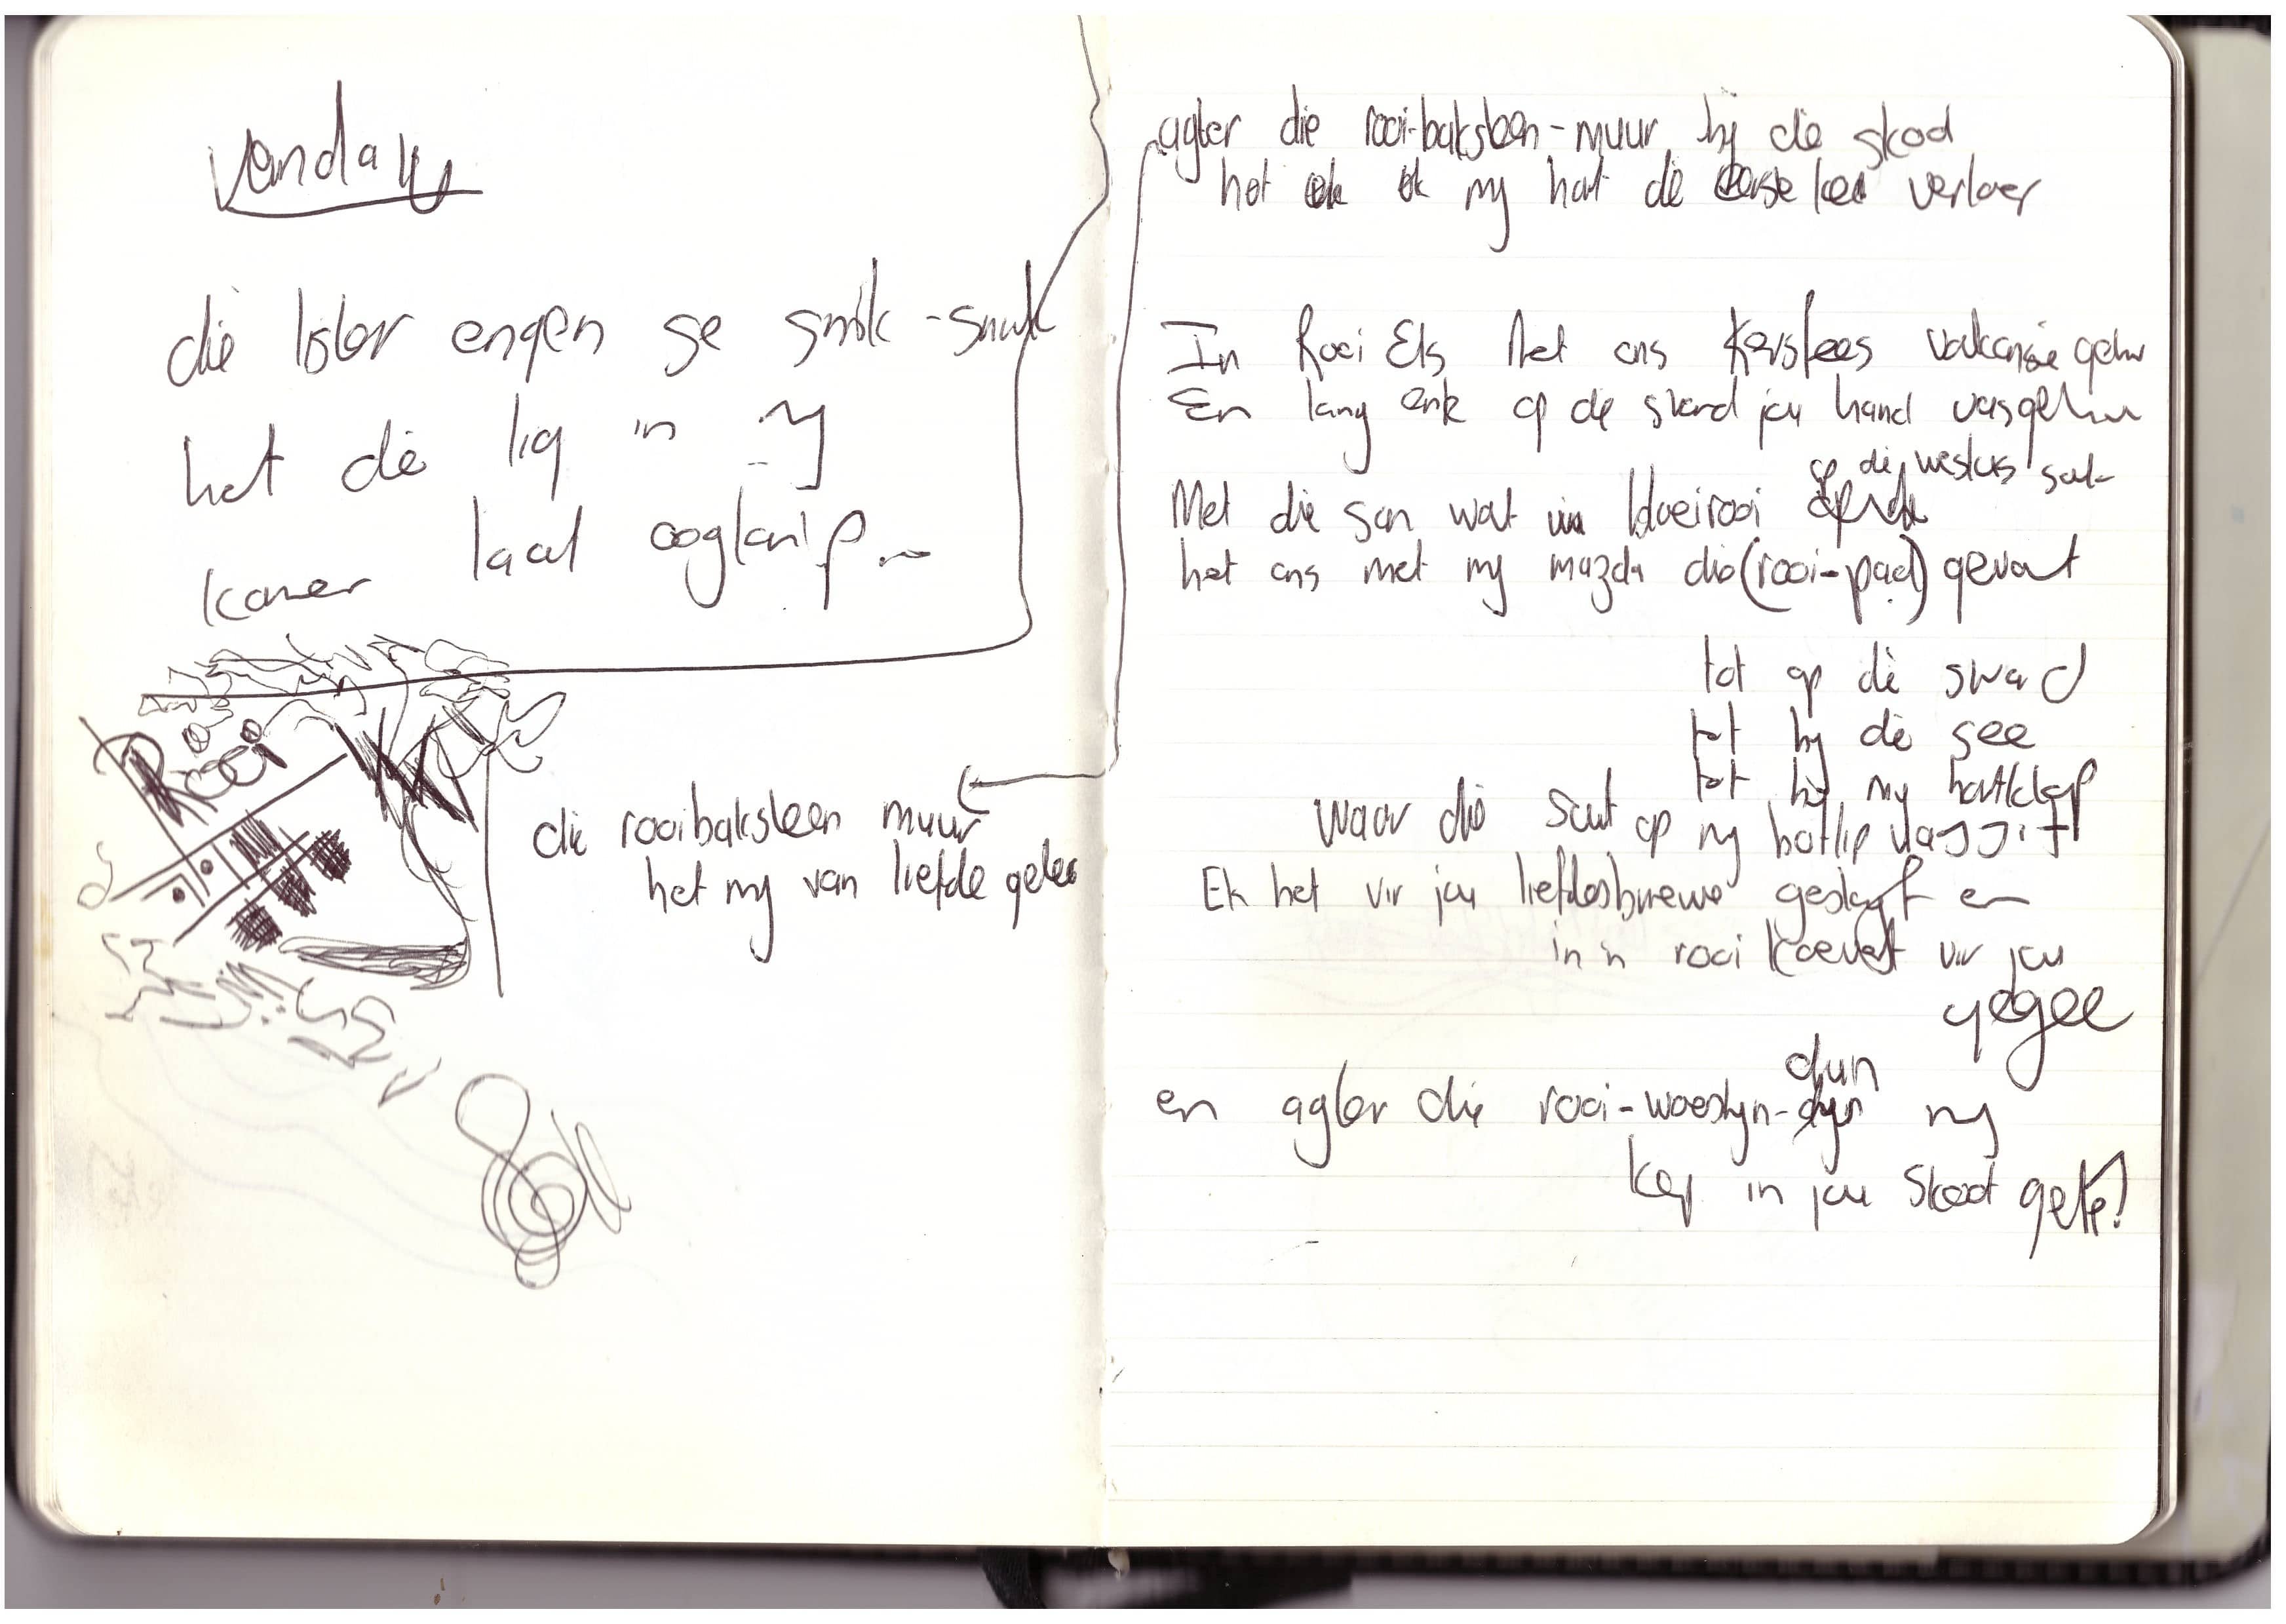 Vandag
die lister engen se smik-smuk
het die lig in my
kamer laat oogknip...
Rooi
die rooibaksteen muur
het my van liefde geleer
agter die rooi-baksteen-muur by die skool
het ek my hart die eerste keer verloor
In Rooi Els het ons Kersfees vakansie gehou
En lang ente op die strand jou hand vasgehou
Met die son wat bloeirooi op die weskus sak
het ons met my mazda die (rooi-pad) gevat
tot op die strand
tot by die see
tot by my hartklop
waar die sout op my botlip
Ek het vir jou liefdesbriewe geskryf en
in 'n rooi koevert vir jou
gegee
en agter die rooi-woestyn-duin my
kop in jou skoot